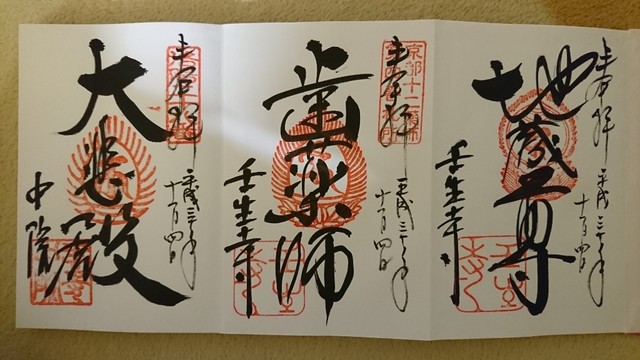 奉拝
平成三十年
十一月四日
地蔵尊
壬生寺
奉拝
平成三十年
十一月四日
歯薬師
壬生寺
奉拝
平成三十年
十一月四日
大悲殿
中院